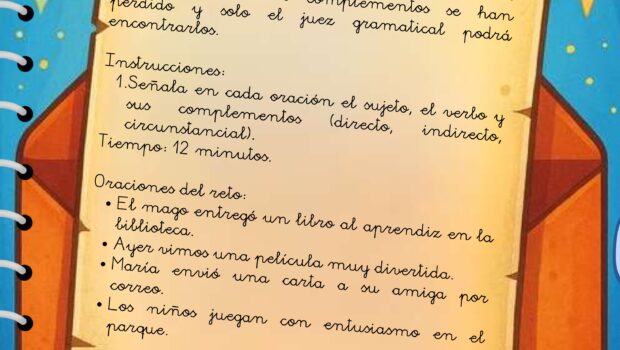 complementos se han
perdido y solo el juez gramatical podrá
encontrarlos.
Instrucciones:
1.Señala en cada oración el sujeto, el verbo y
sus complementos (directo, indirecto,
circunstancial).
Tiempo: 12 minutos.
Oraciones del reto:
• El mago entregó un libro al aprendiz en la
biblioteca.
• Ayer vimos una película muy divertida.
• María envió una carta a su amiga por
correo.
• Los niños juegan con entusiasmo en el
parque.